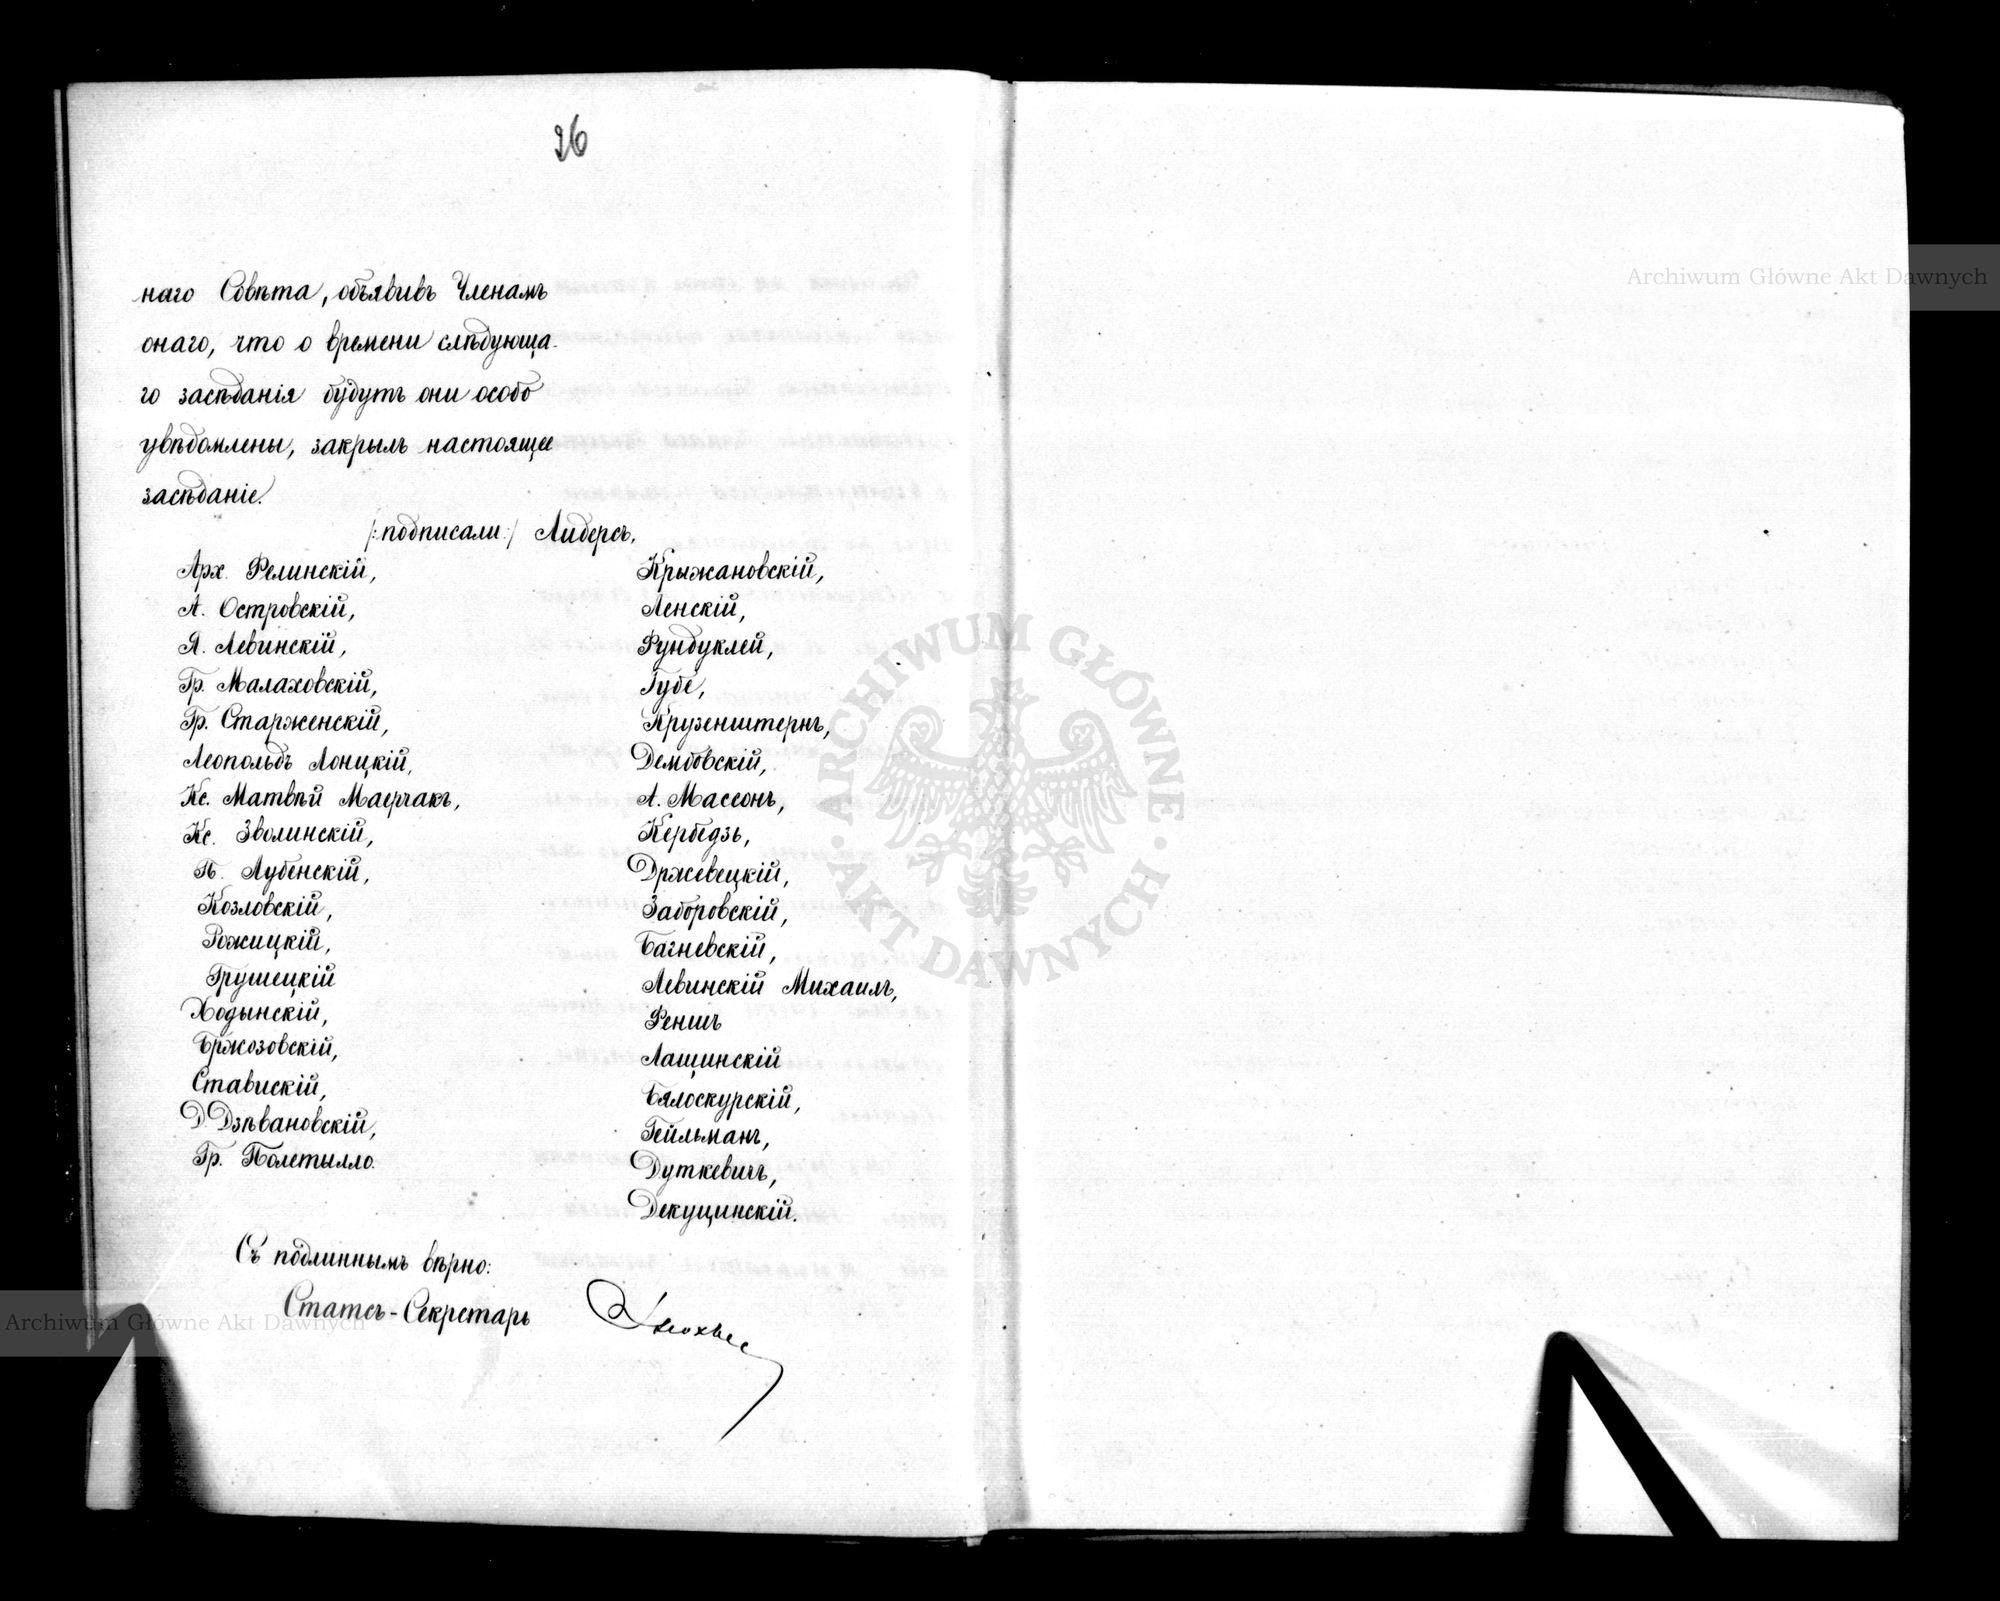 26
наго Совѣта, объявивъ Членамъ
онаго, что о времени слѣдующа-
го засѣданія будутъ они особо
увѣдомлены, закрылъ настоящее
засѣданіе.
/:подписали:/ Лидерсъ,
Арх. Фелинскій,
А. Островскій,
Я. Левинскій,
Гр. Малаховскій,
Гр. Старженскій,
Леопольдъ Лонцкій,
Кс. Матвѣй Маерчакъ,
Кс. Зволинскій,
П. Лубенскій,
Козловскій,
Рожицкій,
Грушецкій
Ходынскій,
Бржозовскій,
Ставискій,
Д. Дзѣвановскій,
Гр. Полетылло.
Крыжановскій,
Ленскій,
Фундуклей,
Губе,
Крузенштернъ,
Дембовскій,
А. Массонъ,
Кербедзъ,
Држевецкій,
Заборовскій,
Багневскій,
Левинскій Михаилъ,
Феншъ
Лащинскій
Бялоскурскій,
Гейльманъ,
Дуткевичъ,
Декуцинскій.
Съ подлиннымъ вѣрно:
Статсъ-Секретарь
Archiwum Główne Akt Dawnych
Archiwum Główne Akt Dawnych
ARCHIWUM GŁÓWNE · AKT DAWNYCH ·